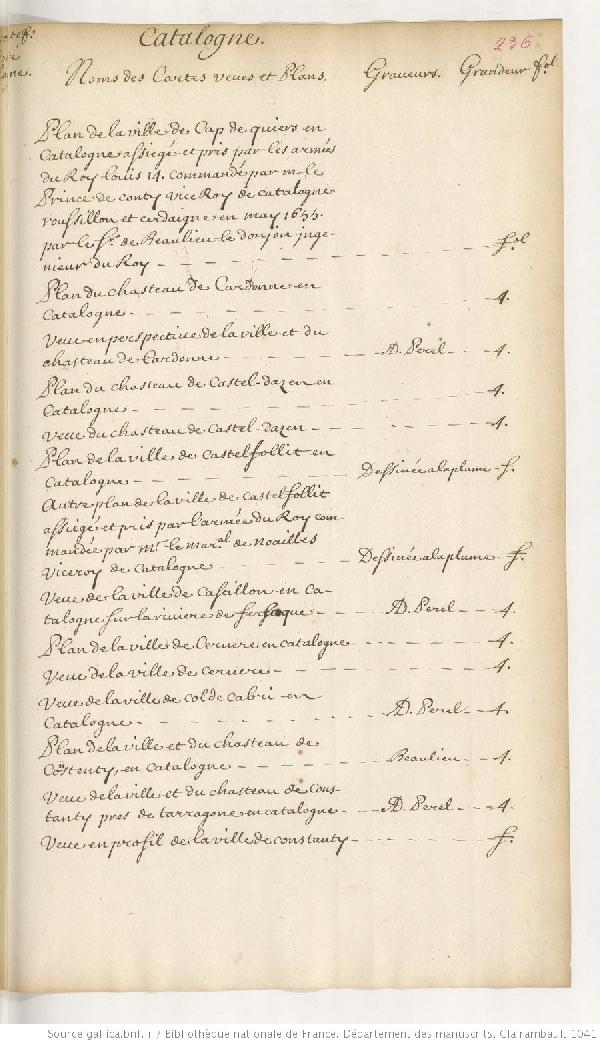 Catalogne.
236
Noms des Cartes veues et Plans. Graveurs. Grandeur fol
Plan de la ville de Cap de quiers en
Catalogne assiegé et pris par les armes
du Roy Louis 14. commandé par m. le
Prince de conty viceRoy de catalogne
roussillon et cerdaigne en may 1655.
par le Sr. de Beaulieu le donjon inge-
nieur du Roy - fol
Plan du chasteau de Cardonne en
Catalogne - 4.
Veue en perspective de la ville et du
chasteau de Cardonne - AD. Perel - 4.
Plan du chasteau de Castel-dazen en
Catalogne - 4.
Veue du chasteau de Castel-dazen - 4.
Plan de la ville de Castelfollit en
Catalogne - Dessinée a la plume - f.
Autre plan de la ville de Castelfollit
assiegé et pris par l'armée du Roy com-
mandée par Mr. le maral. de Noailles
Viceroy de Catalogne - Dessinée a la plume - f.
Veue de la ville de Casaillon en Ca-
talogne sur la riviere de - AD. Perel - 4.
Plan de la ville de Cervere en catalogne - 4.
Veue de la ville de cervere - 4.
Veue de la ville de col de cabri en
Catalogne - AD. Perel - 4.
Plan de la ville et du chasteau de
Constenty, en Catalogne - Beaulieu - 4.
Veue de la ville et du chasteau de Cons-
tanty pres de tarragone en catalogne - AD. Perel - 4.
Veue en profil de la ville de constanty - f.
Source gallica.bnf.fr / Bibliothèque nationale de France. Département des manuscrits. Clairambault 1041